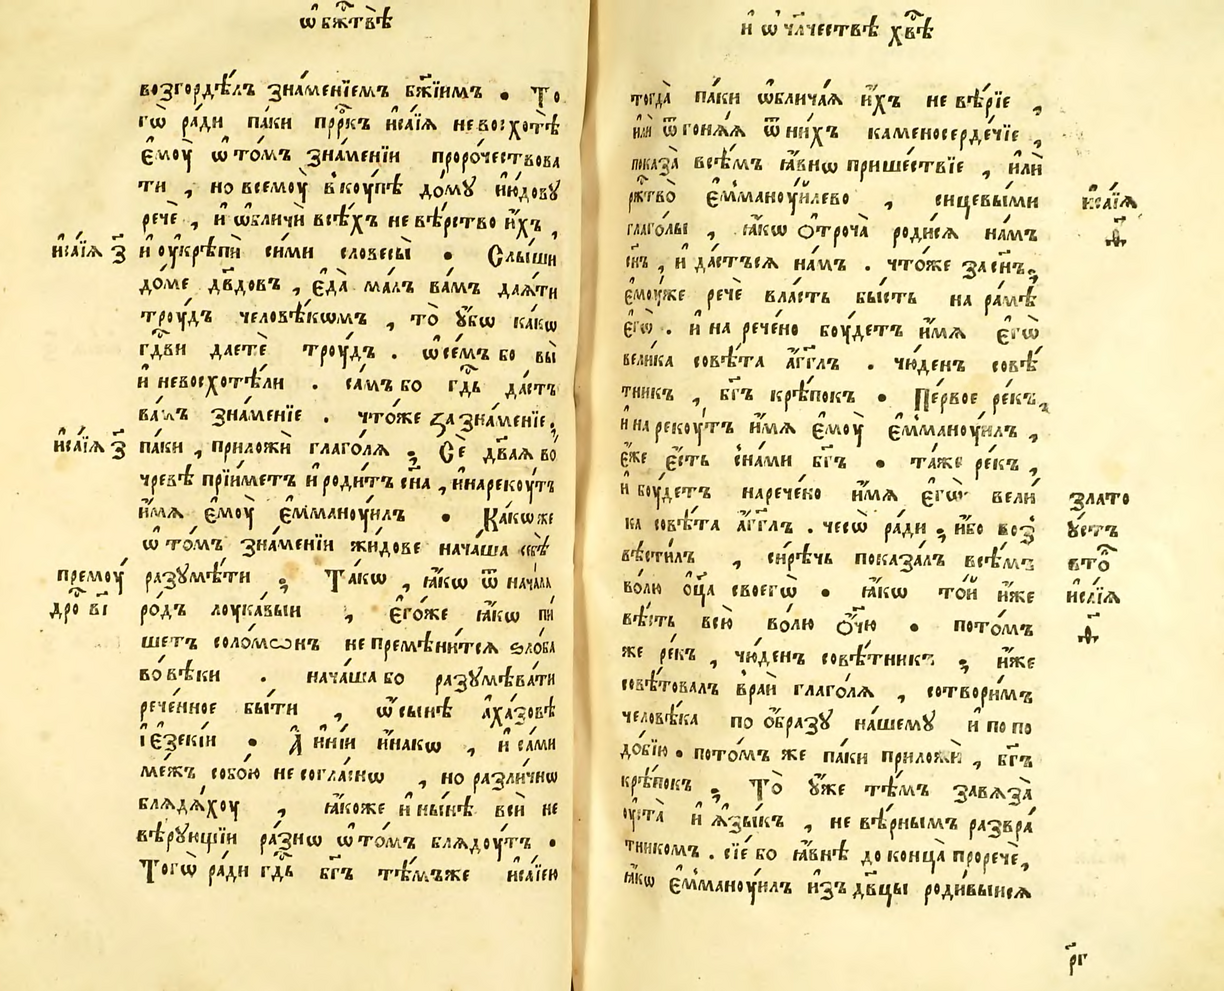 ѡ҆ бж҃твѣ
возгордѣ́лъ зна́менїемъ бж҃їимъ . То
гѡ̀ ра́ди па́ки прⷪ҇ркъ и҆са́їꙗ невосхотѣ̀
є҆моу̀ ѡ҆ то́мъ зна́менїи проро́чествова
ти , но всемоу̀ вкоу́пѣ до́мꙋ і҆ю́довꙋ
речѐ , и҆ ѡ҆бличѝ всѣ́хъ невѣ́рство и҆́хъ ,
и҆са́їꙗ з҃ и҆ оу҆крѣпѝ си́ми словесы̀ . Слы́ши
до́ме дв҃довъ , є҆да̀ ма́лъ ва́мъ даѧ́ти
троу́дъ человѣ́кѡмъ , то̀ ᲂу҆́бѡ ка́кѡ
гдⷭ҇ви даетѐ троу́дъ . ѡ҆ се́мъ бо вы̀
и҆ невосхотѣ́ли . са́мъ бо гдⷭ҇ь да́стъ
ва́мъ зна́менїе . что́же за зна́менїе ,
и҆са́їꙗ з҃ па́ки , приложѝ глаго́лѧ , Се́ дв҃аѧ во
чре́вѣ прїи́метъ и҆ роди́тъ сн҃а , и҆ нареко́утъ
и҆́мѧ є҆моу̀ є҆мманоуи́лъ . Ка́кѡ же
ѡ҆ то́мъ зна́менїи жи́дове нача́ша себѣ̀
премоу́ разꙋмѣ́ти ; Та́кѡ , ꙗ҆́кѡ ѿ нача́ла
дро в҃і ро́дъ лоука́выи , є҆го́же ꙗ҆́кѡ пи́
шетъ соло́мѡнъ не премѣни́тсѧ ѕло́ба
во́ вѣки . нача́ша бо разꙋмѣва́ти
рече́нное бы́ти , ѡ҆ сы́нѣ а҆ха́зовѣ
і҆єзекі́и . А҆ и҆ні́и и҆́накѡ , и҆ са́ми
ме́жъ собо́ю несогла́снѡ , но разли́чнѡ
блѧдѧ́хоу , ꙗ҆́коже и҆ ны́нѣ всѝ не
вѣ́рꙋющїи ра́знѡ ѡ҆ то́мъ блѧдо́утъ .
Тогѡ̀ ра́ди гдⷭ҇ь бг҃ъ тѣ́мъже и҆са́їею
и҆ ѡ҆ чл҃честве хвⷭ҇ѣ
тогда̀ па́ки ѡ҆блича́ѧ и҆́хъ невѣ́рїе ,
и҆лѝ ѿгонѧ́ѧ ѿ ни́хъ каменосерде́чїе ,
показа̀ всѣ́мъ ꙗ҆́внѡ прише́ствїе , и҆лѝ
ржⷭ҇тво̀ є҆мманоуи́лево , сицевы́ми и҆са́їꙗ
глаго́лы , ꙗ҆́кѡ ѻ҆троча̀ роди́сѧ на́мъ ѳ҃
сн҃ъ , и҆ да́стъсѧ на́мъ . что́же за сн҃ъ ,
є҆моу́же речѐ вла́сть бы́сть на ра́мѣ
є҆гѡ̀ . и҆ на рече́но боу́детъ и҆́мѧ є҆гѡ̀
вели́ка совѣ́та а҆́гг҃лъ . чю́денъ совѣ́
тникъ , бг҃ъ крѣ́покъ . Пе́рвое ре́къ ,
и҆ нареко́утъ и҆́мѧ є҆моу̀ є҆мманоуи́лъ ,
є҆́же є҆́сть с на́ми бг҃ъ . та́же ре́къ ,
и҆ боу́детъ нарече́но и҆́мѧ є҆гѡ̀ вели́ злато
ка совѣ́та а҆́гг҃лъ . чесѡ̀ ра́ди ; и҆́бо воз ꙋстъ
вѣсти́лъ , си́рѣчь показа́лъ всѣ́мъ втоⷪ҇
во́лю ѻ҆ц҃а своегѡ̀ . ꙗ҆́кѡ то́й и҆́же и҆са́їꙗ
вѣ́сть всю̀ во́лю ѻ҆́чю . пото́мъ ѳ҃
же ре́къ , чю́денъ совѣ́тникъ ; и҆́же
совѣ́товалъ в ра́й глаго́лѧ , сотвори́мъ
человѣ́ка по ѻ҆́бразꙋ на́шемꙋ и҆ по по
до́бїю . пото́мъ же па́ки приложѝ , бг҃ъ
крѣ́покъ . То̀ ᲂу҆́же тѣ́мъ завѧза̀
оу҆ста̀ и҆ ѧ҆зы́къ , невѣ́рнымъ развра́
тникомъ . сїе́ бо ꙗ҆́внѣ до конца̀ проречѐ ,
ꙗ҆́кѡ є҆мманоуи́лъ и҆зъ дв҃цы роди́выисѧ
рг҃